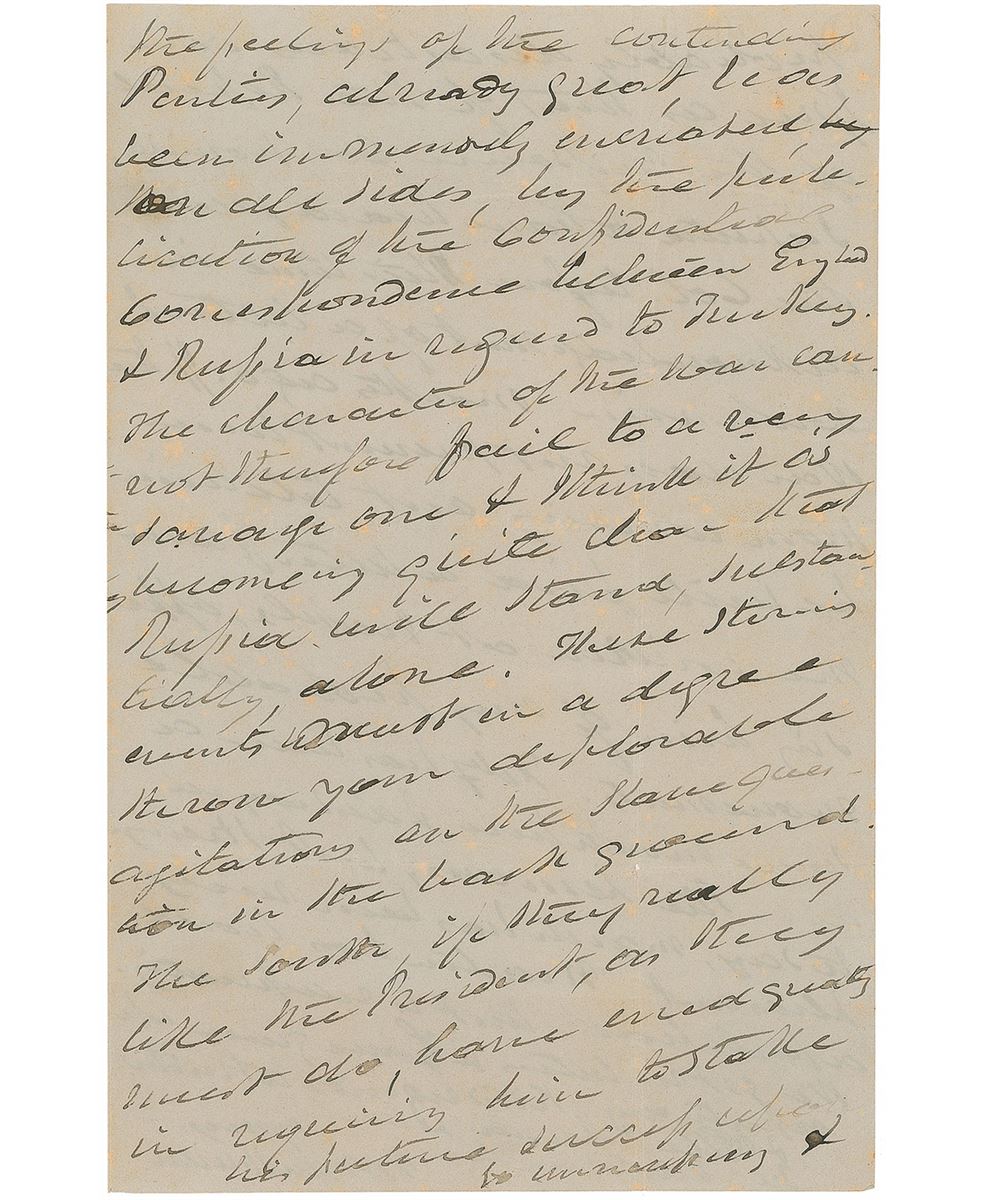 the feelings of the contending
Parties, already great, has
been immensely increased, by
on all sides, by the pub-
lication of the Confidential
Correspondence between Englnd
& Russia in regard to Turkey.
The character of the War can-
not therefore fail to a very
savage one & I think it is
becomeing quite clear that
Russia will stand, substan-
tially, alone. These stirring
events must in a degree
throw your deplorable
agitations on the Slave ques-
tion in the back ground.
The South, if they really
like the President, as they
must do, have erred greatly
in requiring him to stake
his future success upon
to unnecessary &